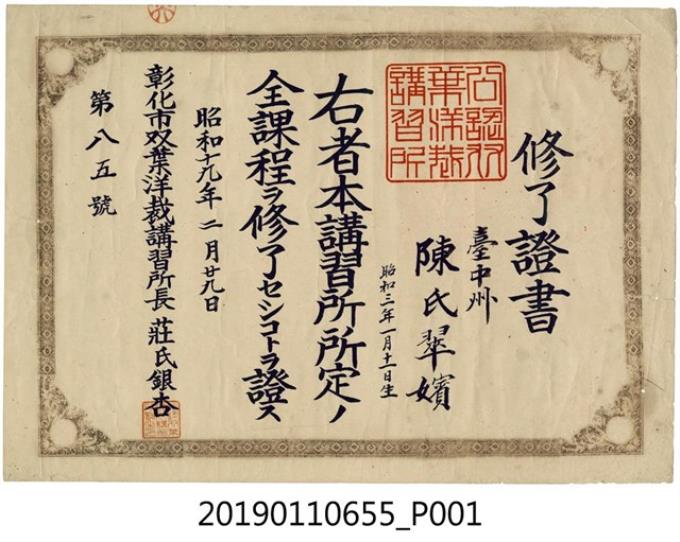 修了證書
臺中州
陳氏翠嬪
昭和三年一月十一日生
右者本講習所所定ノ
全課程ヲ修了セシコトヲ證ス
昭和十九年二月廿九日
彰化市双葉洋裁講習所長 莊氏銀杏
第八五號
公認双
葉洋裁
講習所
20190110655_P001